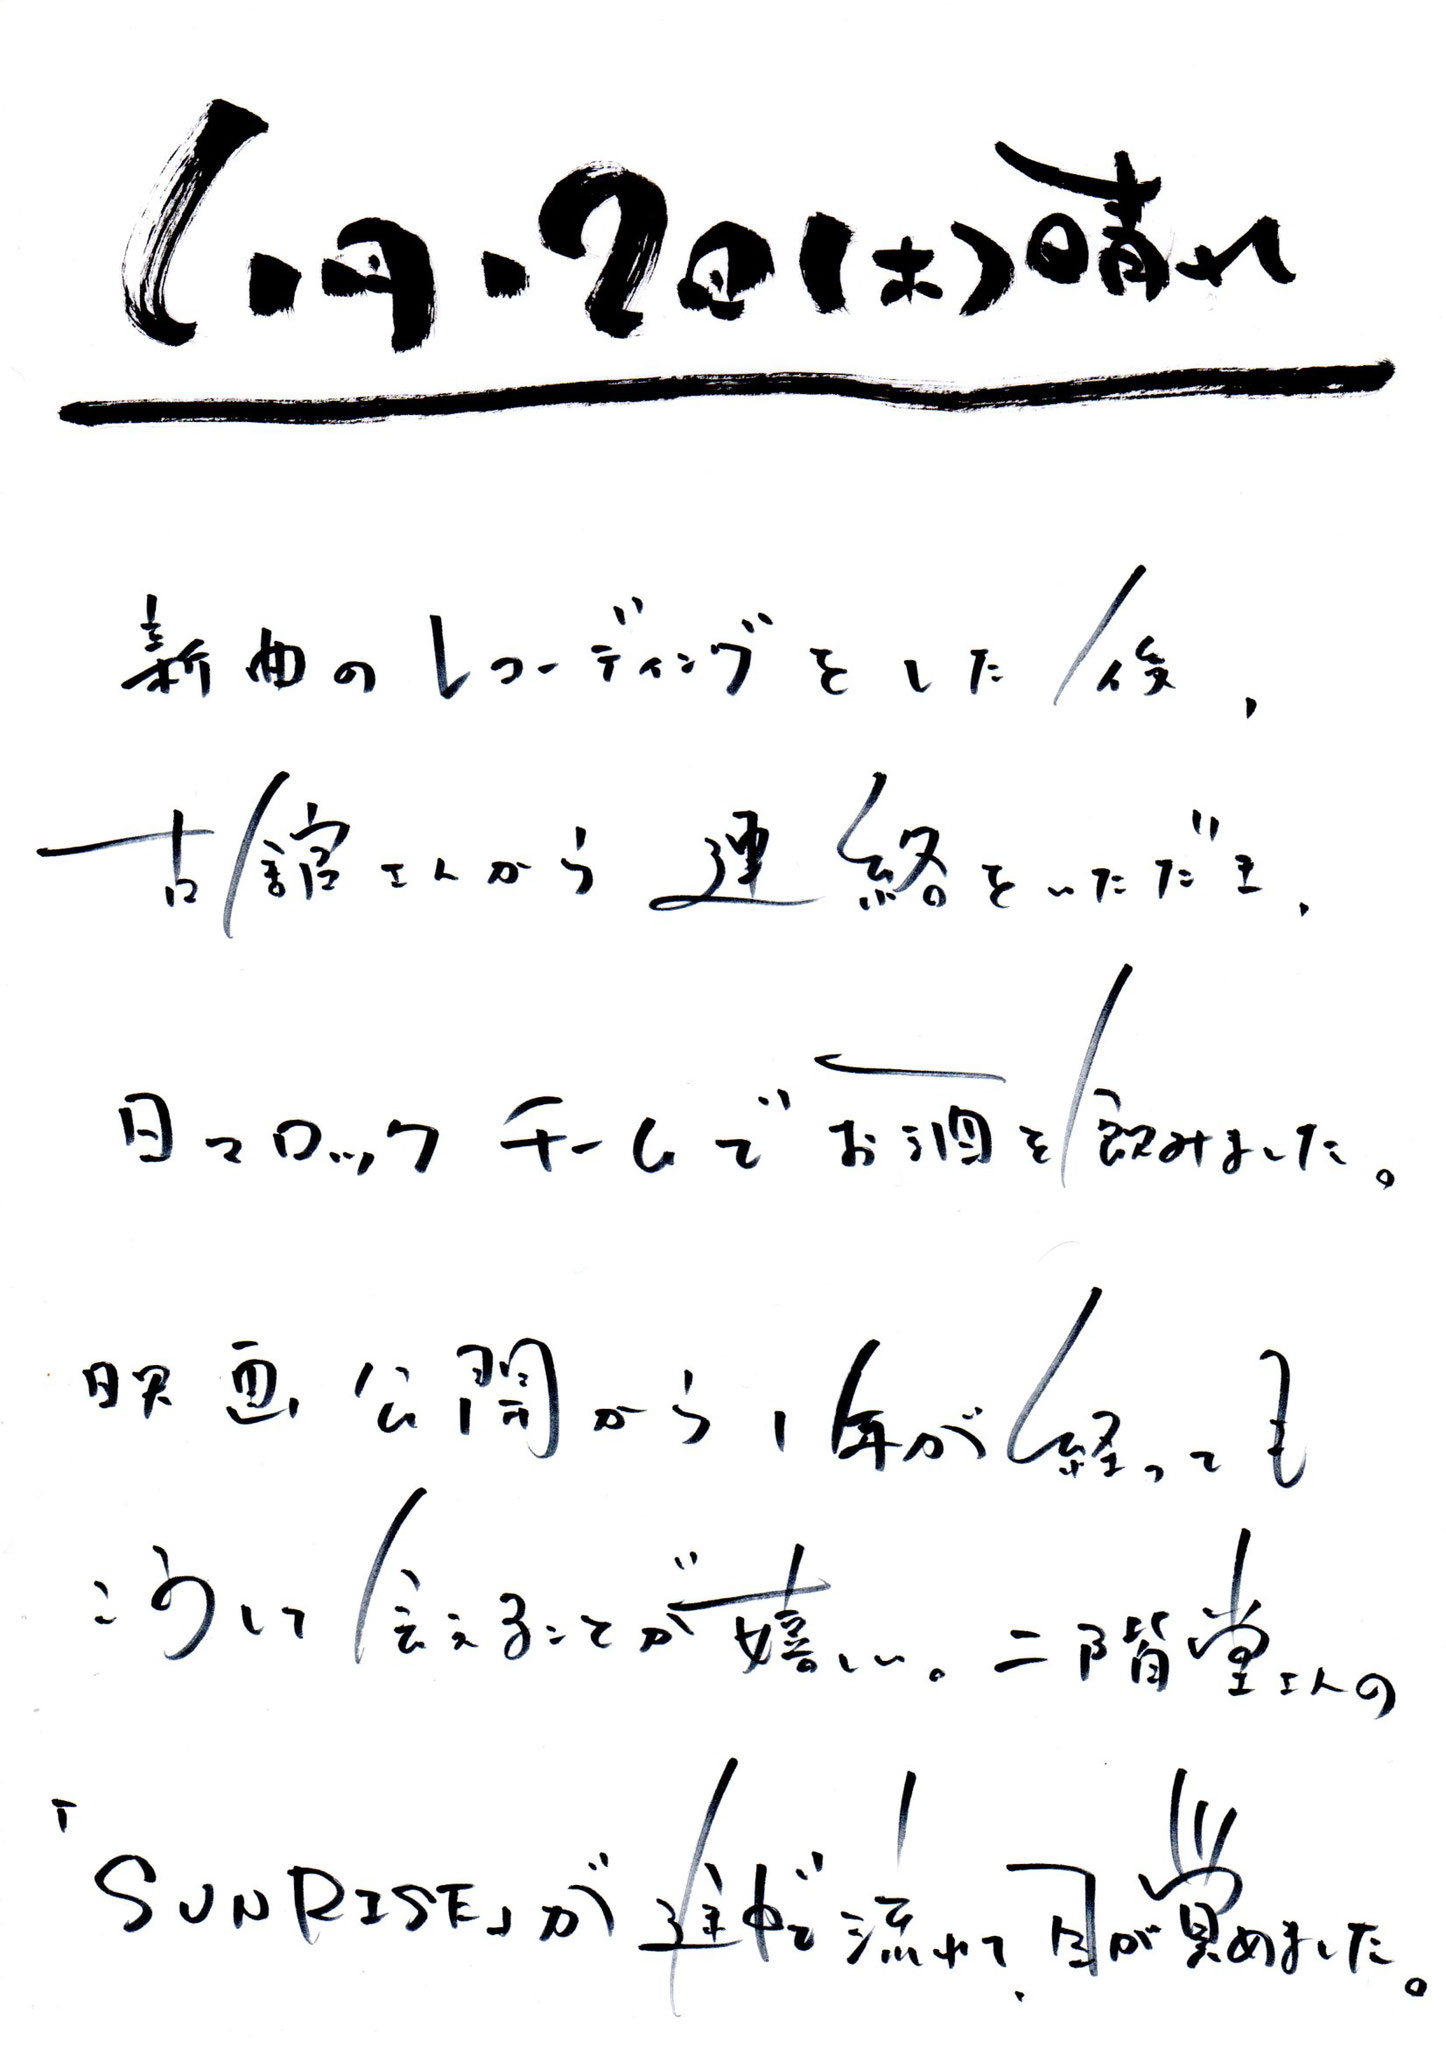 6・月・2日(木)晴れ
新曲のレコーディングをした後、
古舘さんから連絡をいただき、
日々ロックチームでお酒を飲みました。
映画公開から1年が経っても
こうして会えることが嬉しい。二階堂さんの
「SUNRISE」が途中で流れて、目が覚めました。